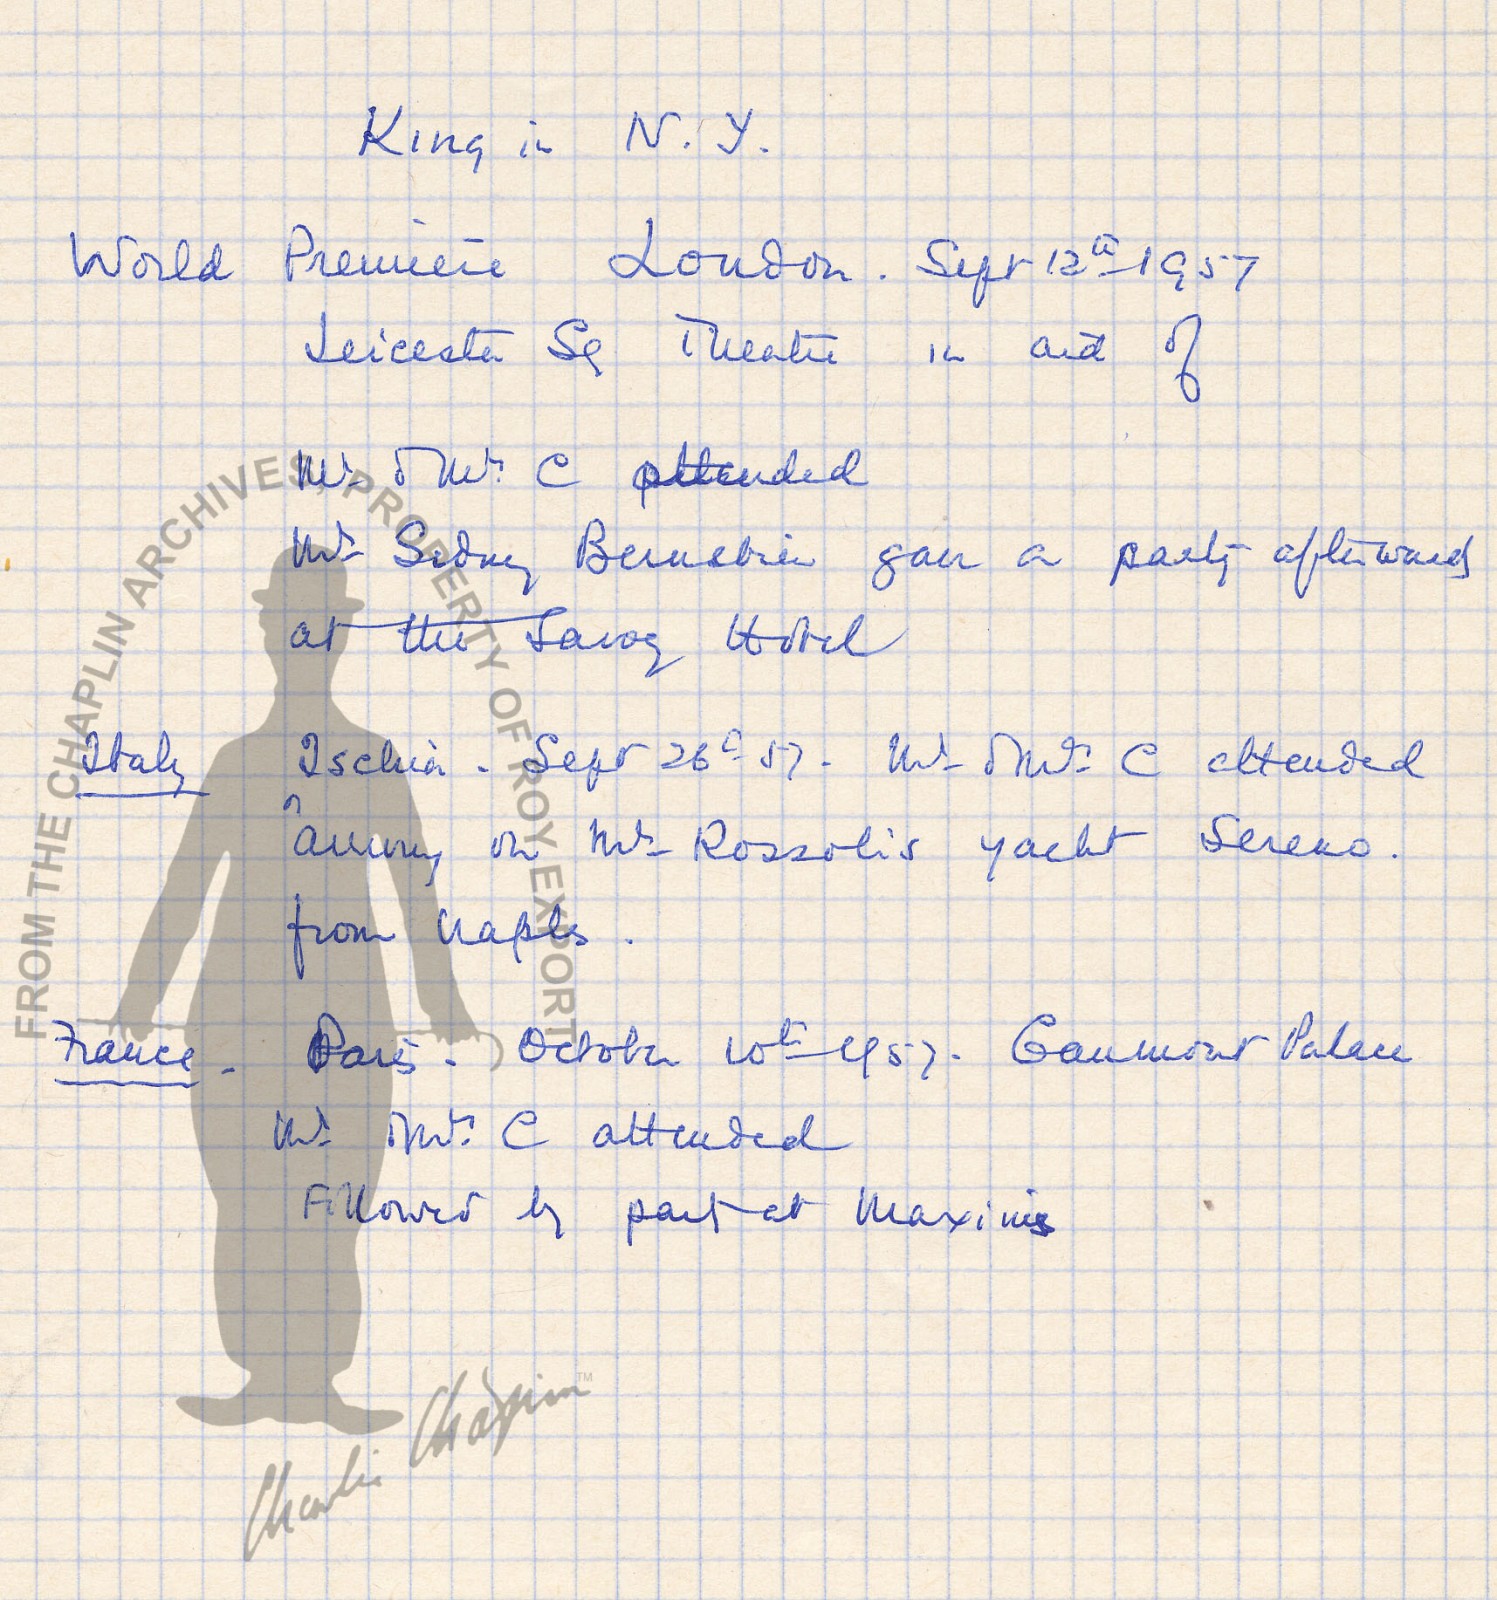 King in N. Y.
World Premiere London. Sept 12th 1957
Leicester Sq Theatre in aid of
Mr. & Mrs. C attended
Mr Sidney Bernstein gave a party afterwards
at the Savoy Hotel
Italy Ischia - Sept 26th 57. Mr & Mrs. C attended
arriving on Mr Rozzolis yacht Sereno.
from Naples.
France - Paris - October 10th 1957. Gaumont Palace
Mr. & Mrs. C attended
Followed by party at Maxims
FROM THE CHAPLIN ARCHIVES, PROPERTY OF ROY EXPORT
Charlie Chaplin TM